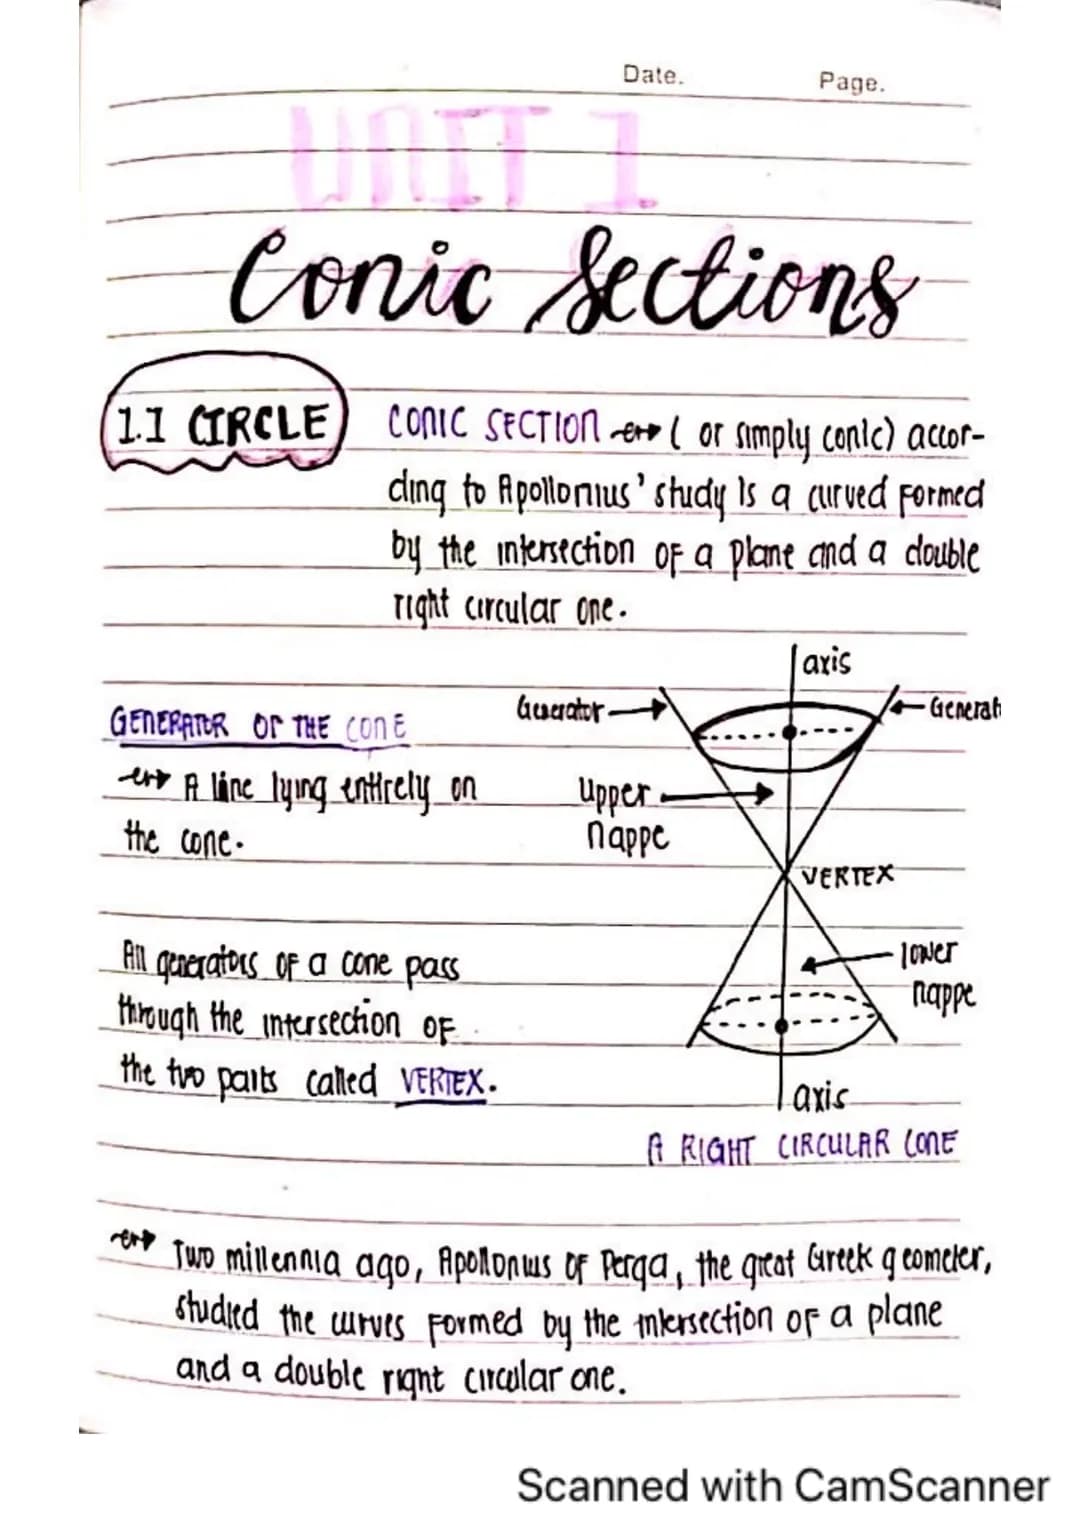 Date. Page.
UNIT 1
Conic Sections
1.1 CIRCLE
CONIC SECTION ( or simply conic) accor-
ding to Apollonius' study is a curved formed
by the intersection of a plane and a double
right circular one.
axis
Generator
Generat
GENERATOR OF THE CONE
A line lying entirely on
the cone.
Upper
nappe
VERTEX
All generators of a cone pass
through the intersection of
the two parts called VERTEX.
lower
nappe
axis
A RIGHT CIRCULAR CONE
Two millennia ago, Apollonius of Perga, the great Greek geometer,
studied the curves formed by the intersection of a plane
and a double right circular one.
Scanned with CamScanner